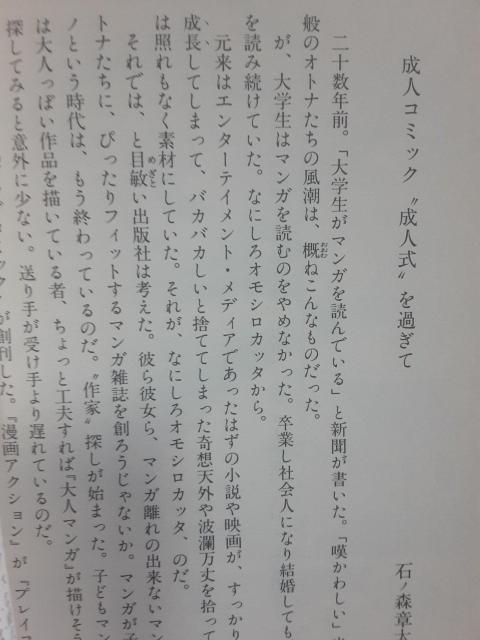 成人コミック〝成人式〟を過ぎて
石ノ森章
二十数年前。「大学生がマンガを読んでいる」と新聞が書いた。「嘆かわしい」
般のオトナたちの風潮は、概ねこんなものだった。
が、大学生はマンガを読むのをやめなかった。卒業し社会人になり結婚しても
を読み続けていた。なにしろオモシロカッタから。
元来はエンターテイメント・メディアであったはずの小説や映画が、すっかり
成長してしまって、バカバカしいと捨ててしまった奇想天外や波瀾万丈を拾って
は照れもなく素材にしていた。それが、なにしろオモシロカッタ、のだ。
それでは、と目敏い出版社は考えた。彼ら彼女ら、マンガ離れの出来ないマン
トナたちに、ぴったりフィットするマンガ雑誌を創ろうじゃないか。マンガが子
ノという時代は、もう終わっているのだ。〝作家〟探しが始まった。子どもマン
は大人っぽい作品を描いている者、ちょっと工夫すれば『大人マンガ』が描けそう
探してみると意外に少ない。送り手が受け手より遅れているのだ。
が創刊した。『漫画アクション』が『プレイコ